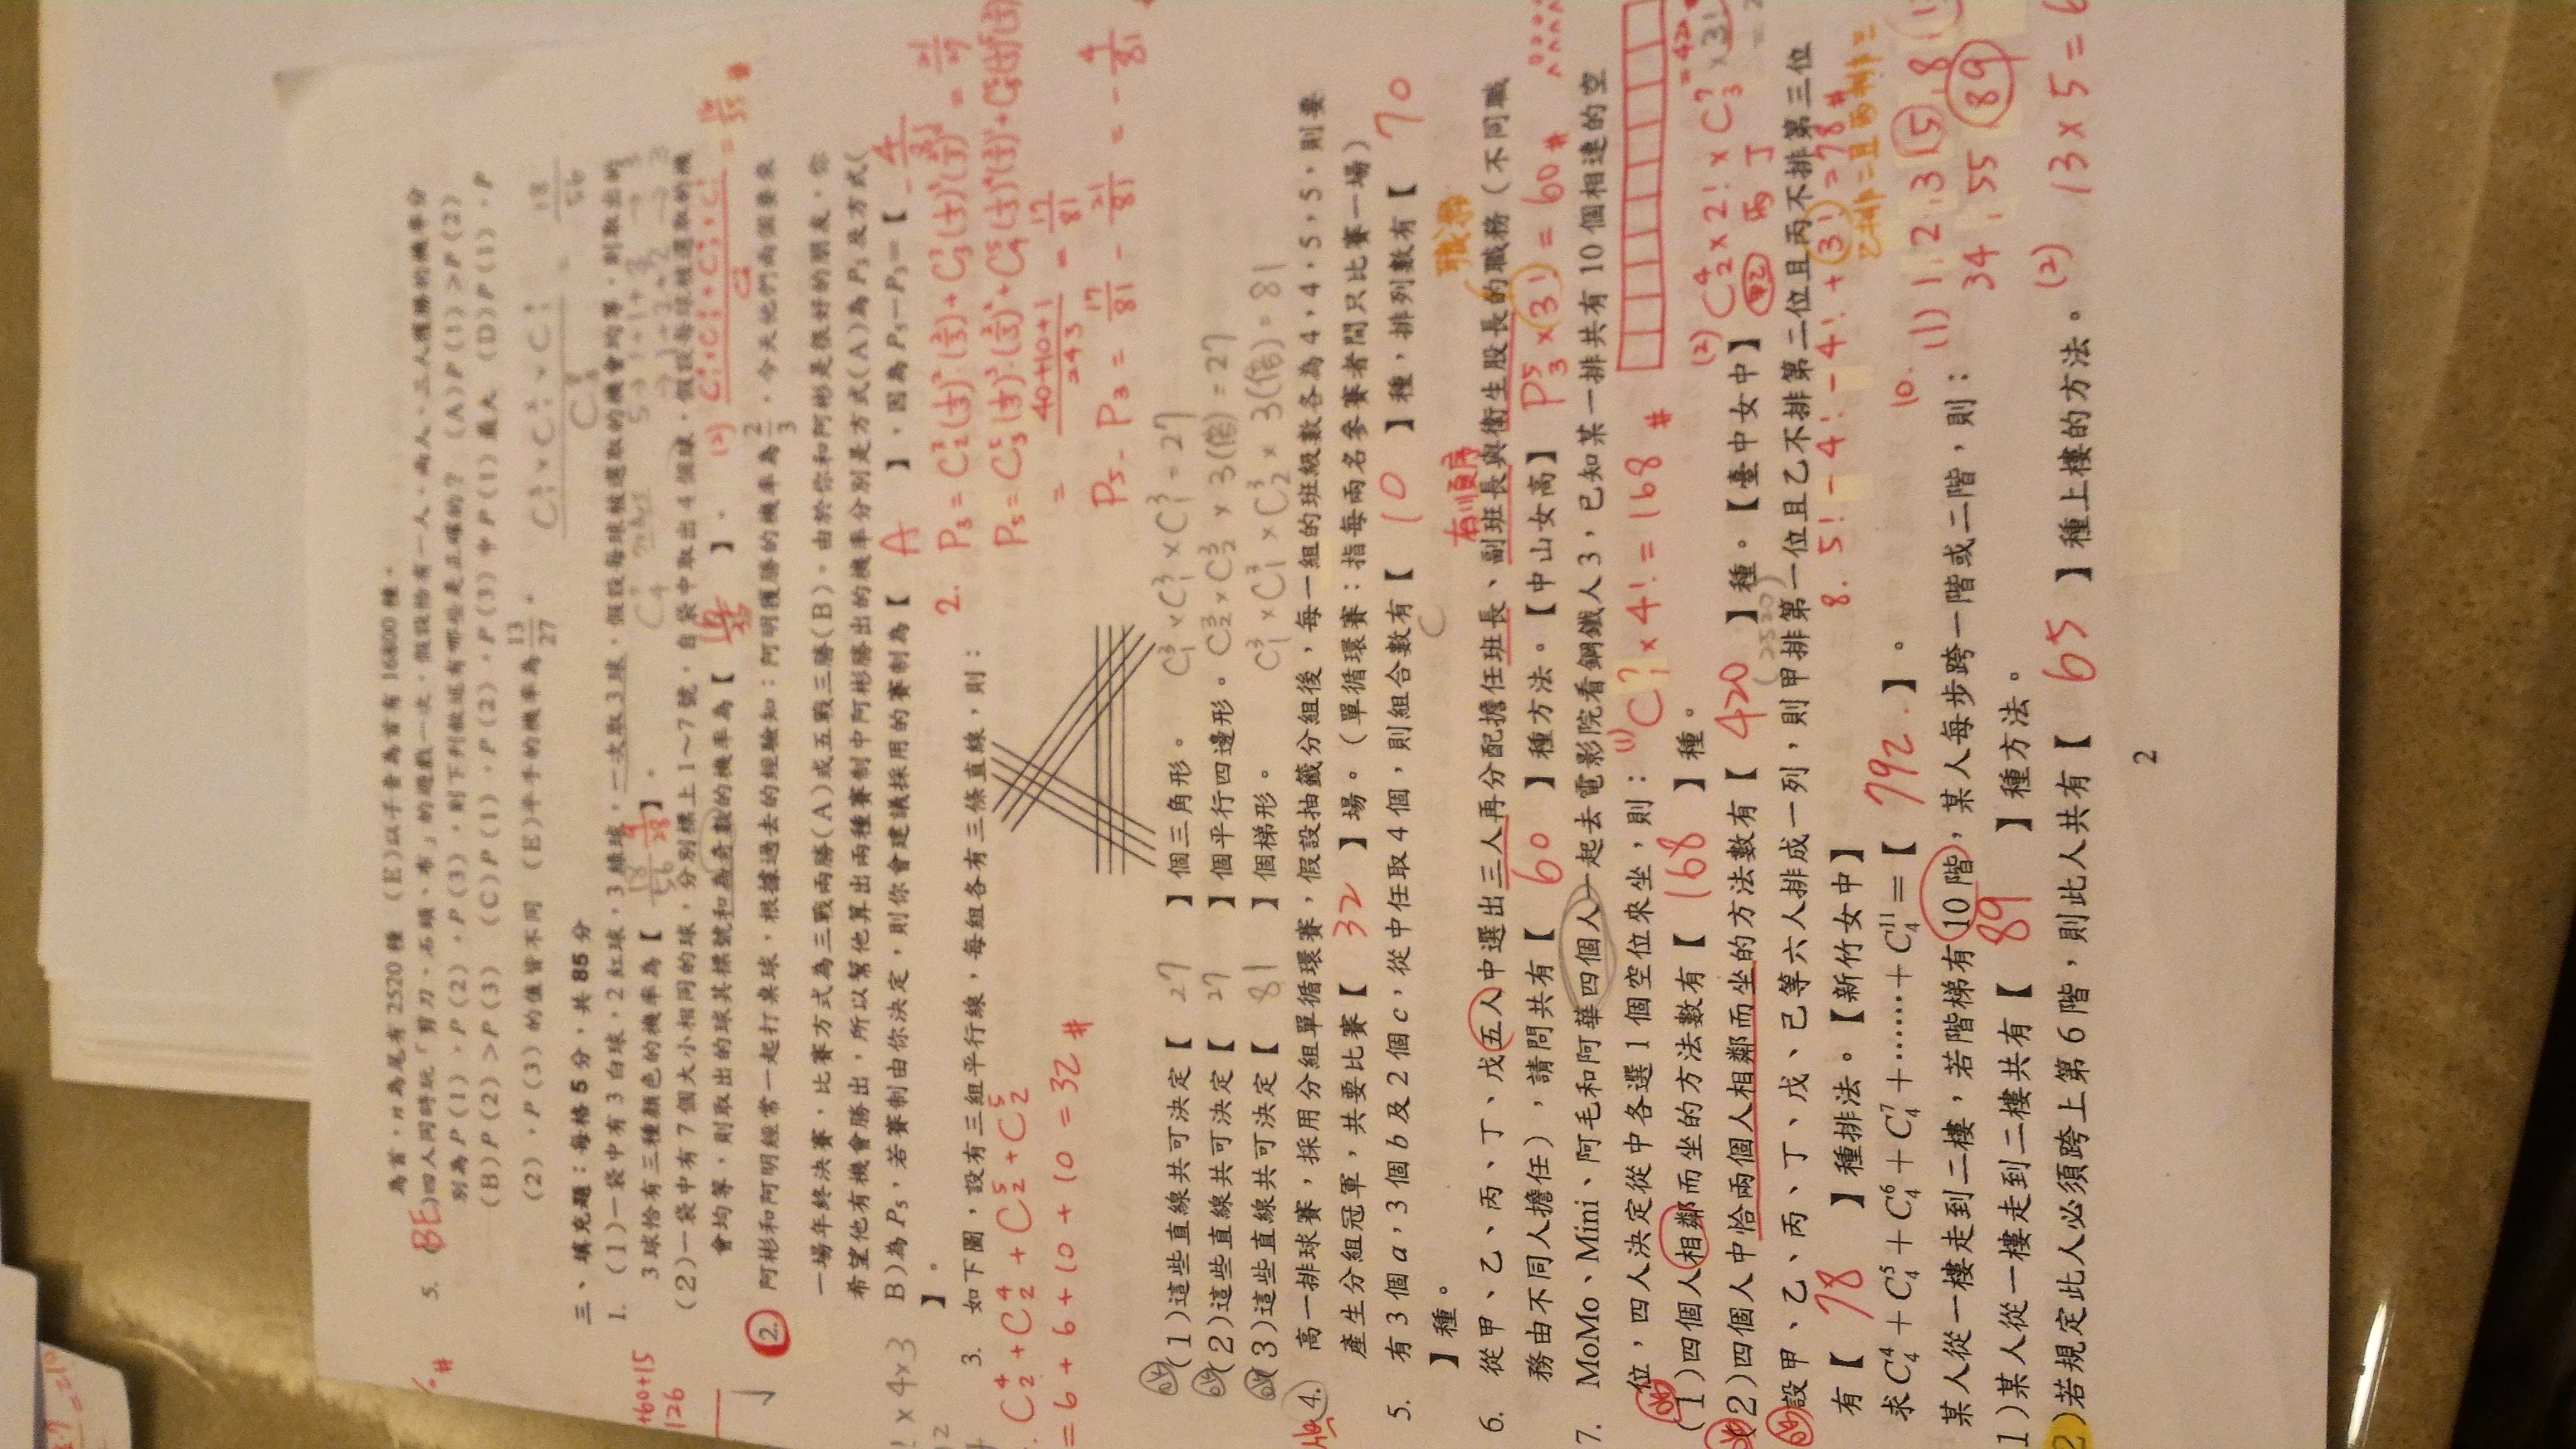 為首,n為尾有2520種 (E)以子音為首有16800種。
5. (BE)四人同時玩「剪刀、石頭、布」的遊戲一次,假設恰有一人、兩人、三人獲勝的機率分
別為P(1),P(2),P(3),則下列敘述有哪些是正確的? (A)P(1)>P(2)
(B)P(2)>P(3) (C)P(1),P(2),P(3)中P(1)最大 (D)P(1),P
(2),P(3)的值皆不同 (E)平手的機率為13/27。
= 18/56
三、填充題:每格5分,共85分
1. (1)一袋中有3白球,2紅球,3綠球,一次取3球,假設每球被選取的機會均等,則取出的
+60+15
3球恰有三種顏色的機率為【 18/56 9/28 】。
126
(2)一袋中有7個大小相同的球,分別標上1~7號,自袋中取出4個球,假設每球被選取的機
會均等,則取出的球其標號和為奇數的機率為【 16/35 】。
2. 阿彬和阿明經常一起打桌球,根據過去的經驗知:阿明獲勝的機率為2/3,今天他們兩個要來
一場年終決賽,比賽方式為三戰兩勝(A)或五戰三勝(B)。由於你和阿彬是很好的朋友,你
希望他有機會勝出,所以幫他算出兩種賽制中阿彬勝出的機率分別是方式(A)為P₃及方式(
! ×4×3
B)為P₅,若賽制由你決定,則你會建議採用的賽制為【 A 】,因為P₅-P₃=【 -4/81
】。
3. 如下圖,設有三組平行線,每組各有三條直線,則:
C⁴₂+C⁴₂+C⁵₂+C⁵₂
=6+6+10+10=32 #
= 40+10+1/243 = 17/81
P₅-P₃ = 17/81 - 21/81 = -4/81
(1)這些直線共可決定【 27 】個三角形。 C³₁×C³₁×C³₁=27
(2)這些直線共可決定【 27 】個平行四邊形。 C³₂×C³₂×3(倍)=27
(3)這些直線共可決定【 81 】個梯形。 C³₁×C³₁×C³₂×3(倍)=81
4. 高一排球賽,採用分組單循環賽,假設抽籤分組後,每一組的班級數各為4,4,5,5,則要
產生分組冠軍,共要比賽【 32 】場。(單循環賽:指每兩名參賽者間只比賽一場)
5. 有3個a,3個b及2個c,從中任取4個,則組合數有【 10 】種,排列數有【 70
】種。 C
有順序 職務
6. 從甲、乙、丙、丁、戊五人中選出三人再分配擔任班長、副班長與衛生股長的職務(不同職
務由不同人擔任),請問共有【 60 】種方法。【中山女高】 P⁵₃×3!=60 #
7. MoMo、Mini、阿毛和阿華四個人一起去電影院看鋼鐵人3,已知某一排共有10個相連的空
位,四人決定從中各選1個空位來坐,則: (1) C⁷₁×4!=168 #
ok (1)四個人相鄰而坐的方法數有【 168 】種。
(2)四個人中恰兩個人相鄰而坐的方法數有【 420 】種。【臺中女中】 (2) C⁴₂×2!×C⁷₃×3!
(2520) 甲乙 丙 丁
設甲、乙、丙、丁、戊、己等六人排成一列,則甲排第一位且乙不排第二位且丙不排第三位
有【 78 】種排法。【新竹女中】 8. 5!-4!-4!+3!=78 #
乙排二且丙排三
求C⁴₄+C⁵₄+C⁶₄+C⁷₄+……+C¹¹₄=【 792 】。
某人從一樓走到二樓,若階梯有10階,某人每步跨一階或二階,則:
10. (1) 1,2,3,5,8,1
34,55,89
1)某人從一樓走到二樓共有【 89 】種方法。
2)若規定此人必須跨上第6階,則此人共有【 65 】種上樓的方法。 (2) 13×5=6
2